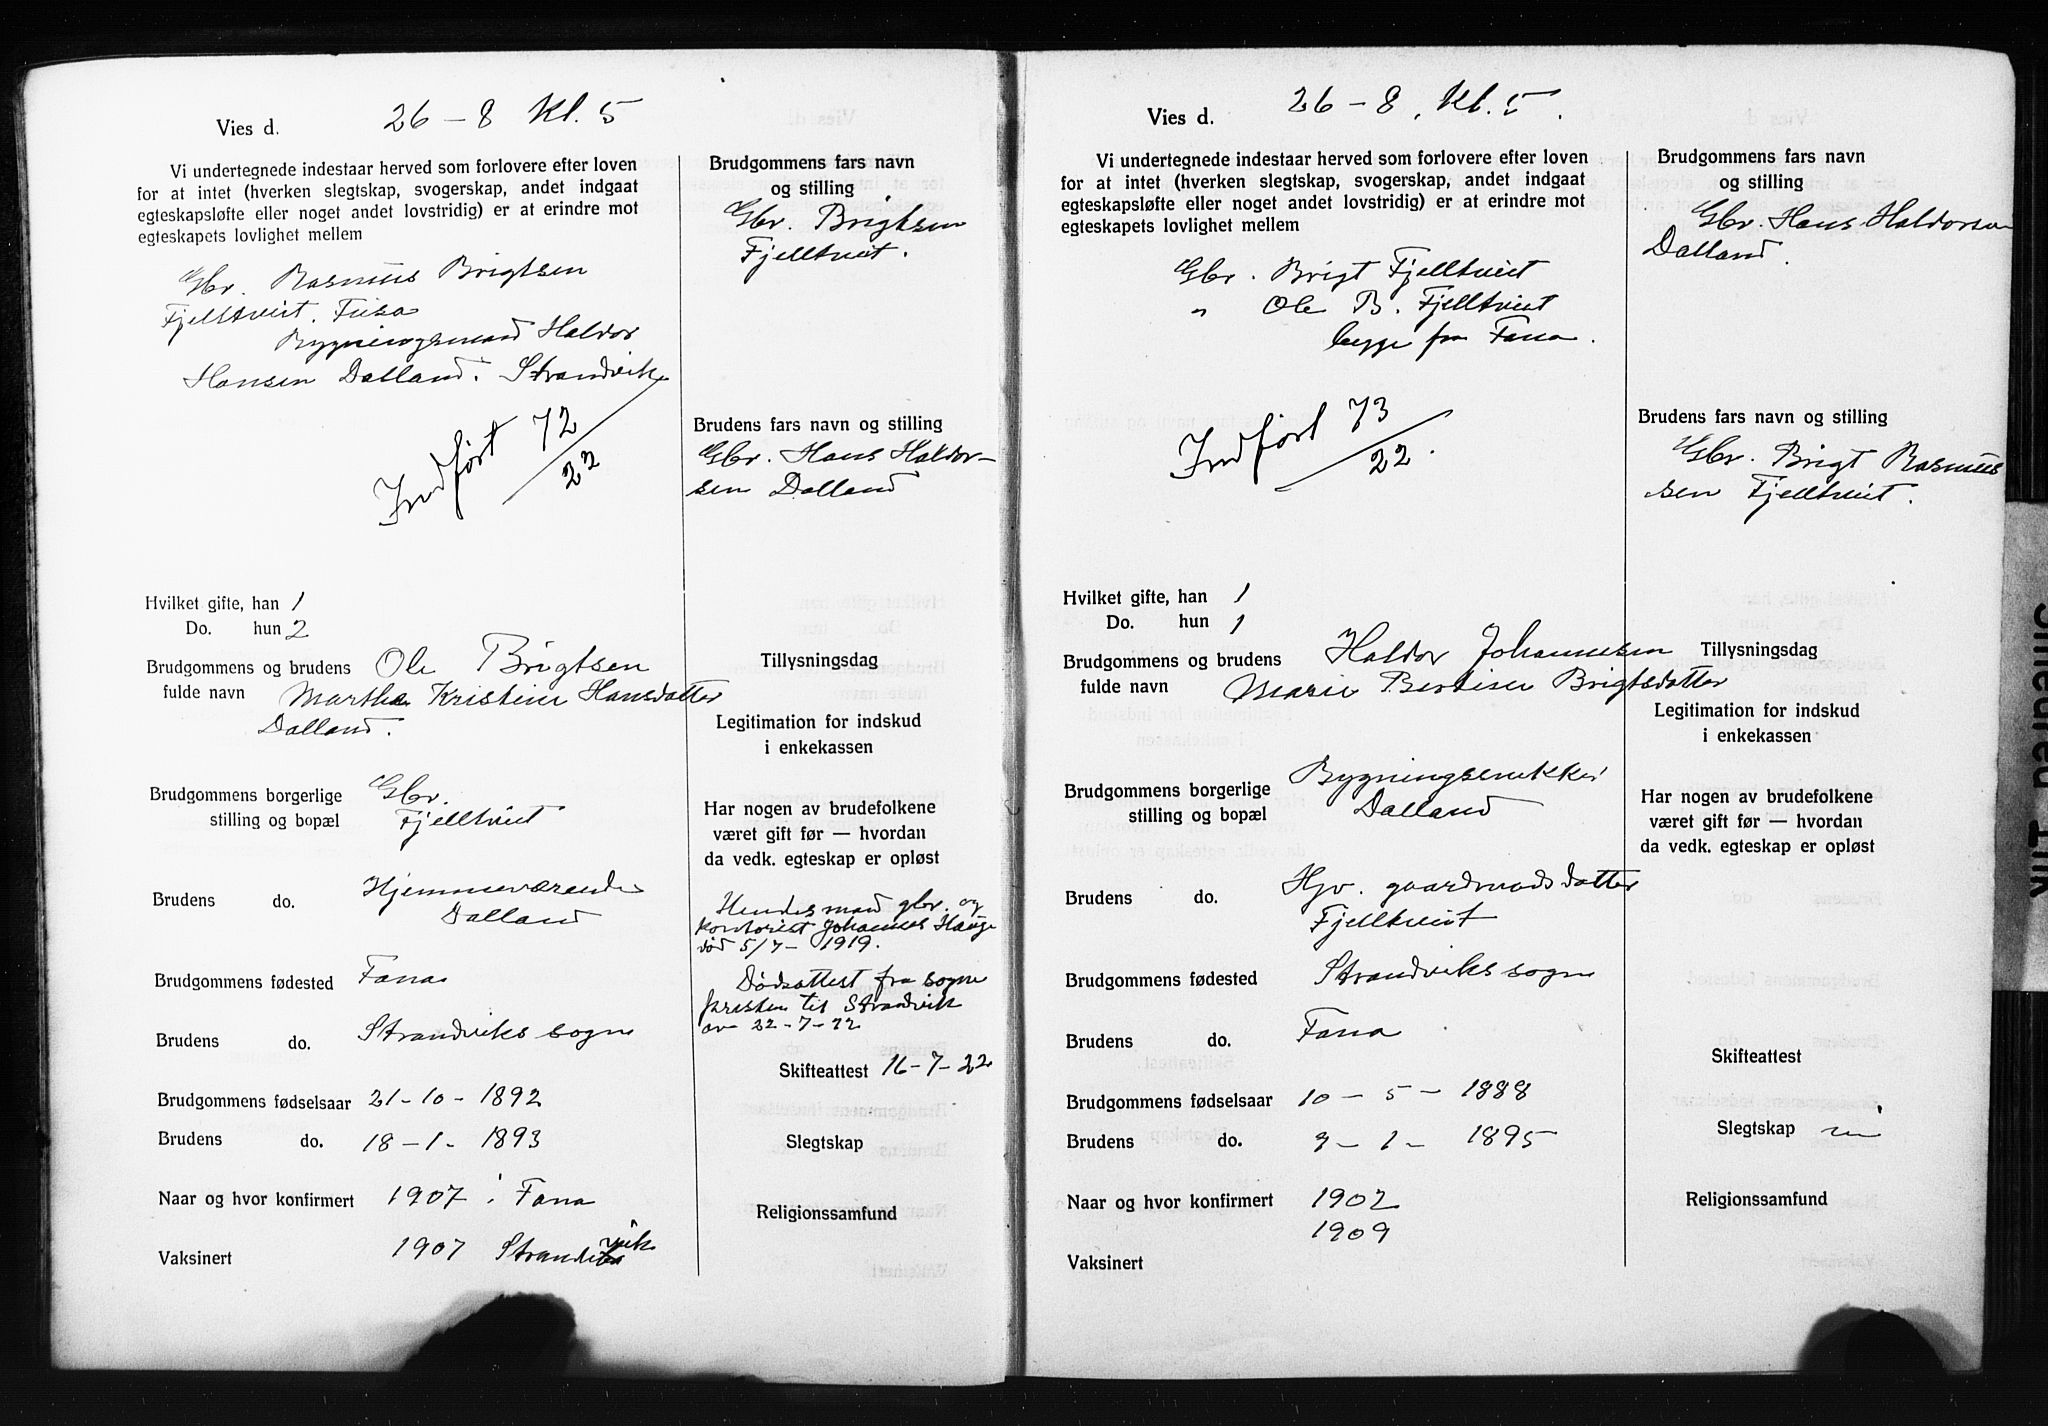 Vies d. 26-8 Kl. 5
Vi undertegnede indestaar herved som forlovere efter loven
for at intet (hverken slegtskap, svogerskap, andet indgaat
egteskapsløfte eller noget andet lovstridig) er at erindre mot
egteskapets lovlighet mellem
Gbr. Rasmus Brigtsen
Fjelltveit. Fusa
Bygningsmand Haldor
Hansen Dalland. Strandvik
Indført 72/22
Hvilket gifte, han 1
Do. hun 2
Brudgommens og brudens Ole Brigtsen
fulde navn Martha Kristine Hansdatter
Dalland.
Brudgommens borgerlige Gbr.
stilling og bopæl Fjelltveit
Brudens do. Hjemmeværende
Dalland
Brudgommens fødested Fana
Brudens do. Strandviks sogn
Brudgommens fødselsaar 21-10-1892
Brudens do. 18-1-1893
Naar og hvor konfirmert 1907 i Fana
1907 Strandvik
Vaksinert
Brudgommens fars navn
og stilling
Gbr. Brigtsen
Fjelltveit.
Brudens fars navn og stilling
Gbr. Hans Haldor-
sen Dalland
Tillysningsdag
Legitimation for indskud
i enkekassen
Har nogen av brudefolkene
været gift før — hvordan
da vedk. egteskap er opløst
Hendes mand gbr. og
kontorist Johannes Hauge
død 5/7-1919.
Dødsattest fra sogne
presten til Strandvik
av 22-7-22
Skifteattest 16-7-22
Slegtskap
Religionssamfund
Vies d. 26-8. Kl. 5.
Vi undertegnede indestaar herved som forlovere efter loven
for at intet (hverken slegtskap, svogerskap, andet indgaat
egteskapsløfte eller noget andet lovstridig) er at erindre mot
egteskapets lovlighet mellem
Gbr. Brigt Fjelltveit
" Ole B. Fjelltveit
begge fra Fana.
Indført 73/22.
Hvilket gifte, han 1
Do. hun 1
Brudgommens og brudens Haldor Johannesen
fulde navn Marie Bertine Brigtsdatter
Brudgommens borgerlige Bygningsnekker
stilling og bopæl Dalland
Brudens do. Hjv. gaardmandsdatter
Fjelltveit
Brudgommens fødested Strandviks sogn
Brudens do. Fana
Brudgommens fødselsaar 10-5-1888
Brudens do. 9-1-1895
Naar og hvor konfirmert 1902
1909
Vaksinert
Brudgommens fars navn
og stilling
Gbr. Hans Haldorsen
Dalland.
Brudens fars navn og stilling
Gbr. Brigt Rasmus
sen Fjelltveit.
Tillysningsdag
Legitimation for indskud
i enkekassen
Har nogen av brudefolkene
været gift før — hvordan
da vedk. egteskap er opløst
Skifteattest
Slegtskap
Religionssamfund